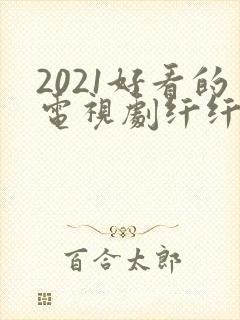 2021好看的
電視劇纤纤
百合太郎